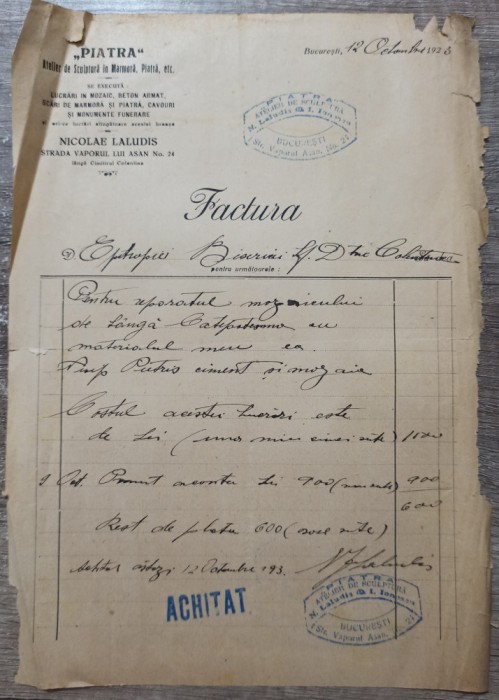 „PIATRA“
Atelier de Sculptură în Marmoră, Piatră, etc.
SE EXECUTĂ
LUCRĂRI IN MOZAIC, BETON ARMAT,
SCĂRI DE MARMORĂ ȘI PIATRĂ, CAVOURI
ȘI MONUMENTE FUNERARE
lucrări atingătoare acestei branșe
NICOLAE LALUDIS
STRADA VAPORUL LUI ASAN No. 24
lângă Cimitirul Colentina
București, 12 Octombrie 1923
PIATRA
ATELIER DE SCULPTURĂ
N. Laludis & I. Ionescu
BUCUREȘTI
Str. Vaporul Asan, No. 21
Factura
Epitropiei Bisericii Sf. Colentina
pentru următoarele :
Pentru reparatul mozaicului
de lângă Catapeteasma cu
materialul meu ca
Timp Pietris ciment și mozaic
Costul acestei lucrări este
de Lei (una mie cinci sute) 1500
9 Oct. Primit acontu Lei 900 (noua sute) 900
600
Rest de plata 600 (șase sute)
Achitat astazi 12 Octombrie 193. N Laludis
ACHITAT
PIATRA
ATELIER DE SCULPTURĂ
N. Laludis & I. Ionescu
BUCUREȘTI
Str. Vaporul Asan, 21